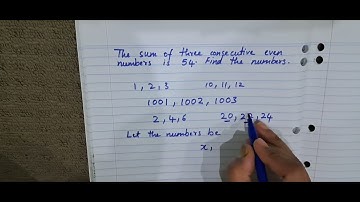 The sum of three consecutive even
numbers is 54. Find the numbers.
1, 2, 3 10, 11, 12
1001, 1002, 1003
2, 4, 6 20, 22, 24
Let the numbers be
x,